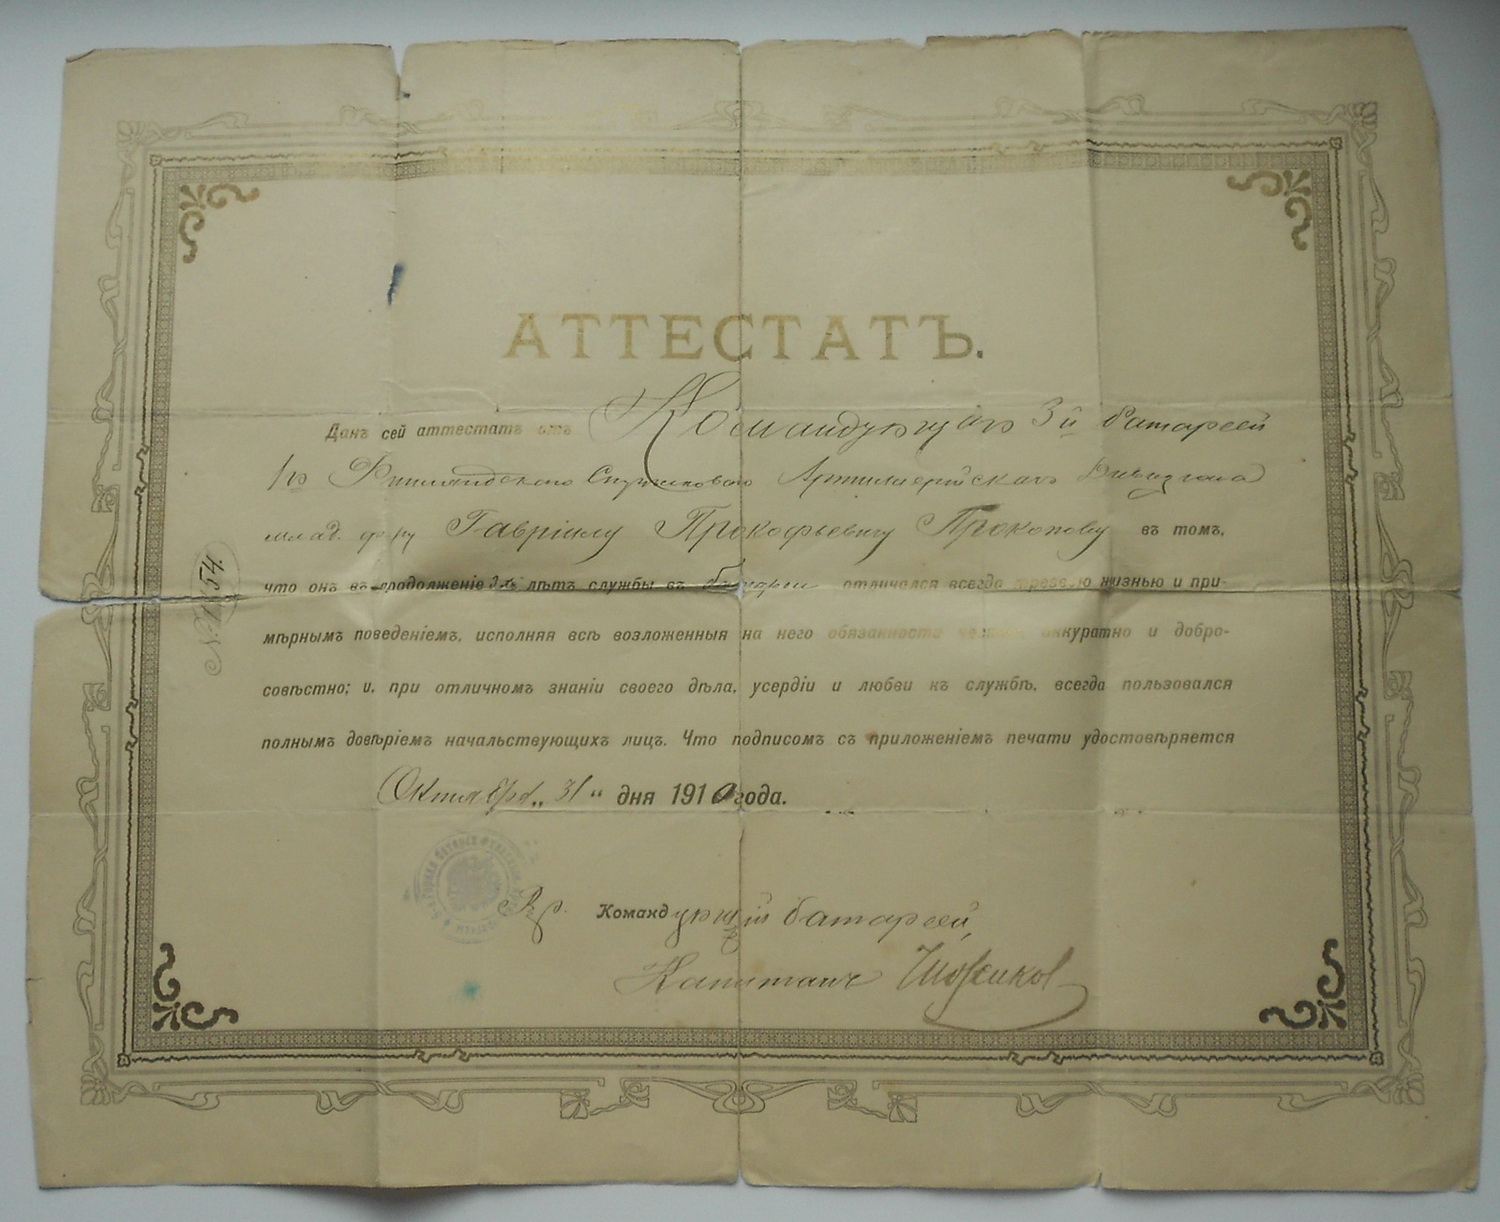 АТТЕСТАТЪ.
Данъ сей аттестатъ отъ Командующаго 3й батареей
1го Финляндскаго Стрѣлковаго Артиллерійскаго Дивизіона
млад. фер-ру Гавріилу Прокофьевичу Прокопову въ томъ,
что онъ въ продолженіе 3хъ лѣтъ службы въ батареи отличался всегда трезвою жизнью и при-
мѣрнымъ поведеніемъ, исполняя всѣ возложенныя на него обязанности честно, аккуратно и добро-
совѣстно; и, при отличномъ знаніи своего дѣла, усердіи и любви къ службѣ, всегда пользовался
полнымъ довѣріемъ начальствующихъ лицъ. Что подписомъ съ приложеніемъ печати удостовѣряется
Октября „31“ дня 1910 года.
Вр. Командующій батареей,
Капитанъ